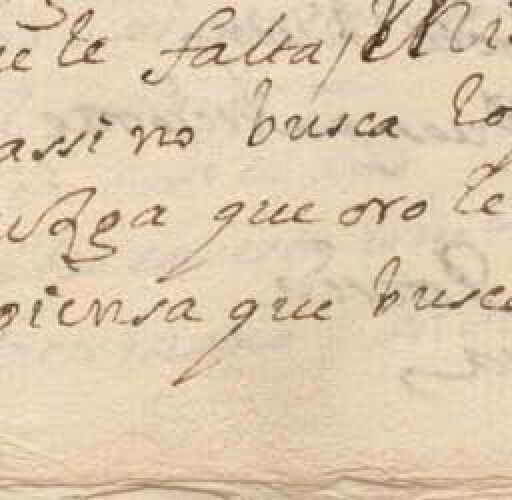 le falta
assi no busca lo
que oro le
piensa que busca